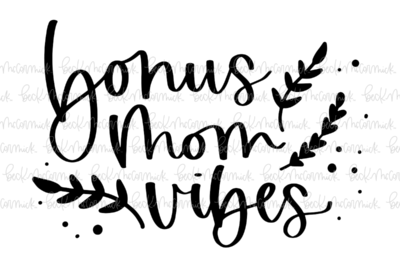 bonus
mom
vibes